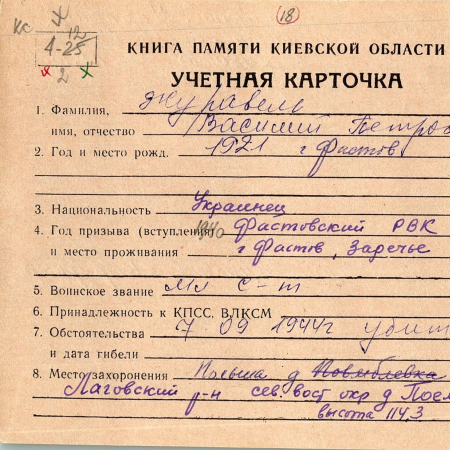 18
КС 12
4-25
х 2 х
КНИГА ПАМЯТИ КИЕВСКОЙ ОБЛАСТИ
УЧЕТНАЯ КАРТОЧКА
1. Фамилия, Журавель
имя, отчество Василий Петро
2. Год и место рожд. 1921 г Фастов
3. Национальность Украинец
4. Год призыва (вступления) 1940 Фастовский РВК
и место проживания г Фастов, Заречье
5. Воинское звание Мл с-т
6. Принадлежность к КПСС, ВЛКСМ
7. Обстоятельства 7 09 1944г убит
и дата гибели
8. Место захоронения Польша д
Лаговский р-н сев. вост окр д Поем
высота 114,3